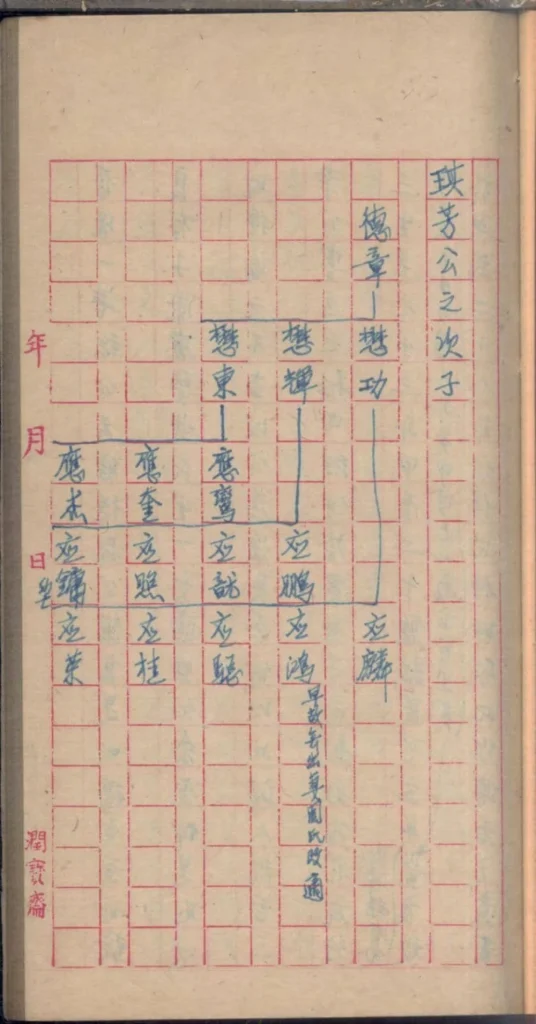 琪芳公之次子
德章
懋功
懋輝
懋東
應鸞
應奎
應杰
应鵬
应龍
应照
应鏞
应麟
应鴻
早故無出
周氏改適
应驄
应桂
应葉
年
月
日
潤寶齋